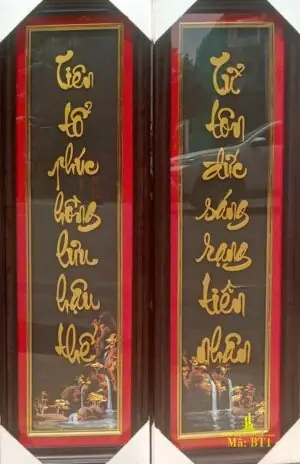 Tiên
tổ
phúc
hồng
lưu
hậu
thế
Tử
tôn
đức
sáng
rạng
tiền
nhân
Mã: BT1